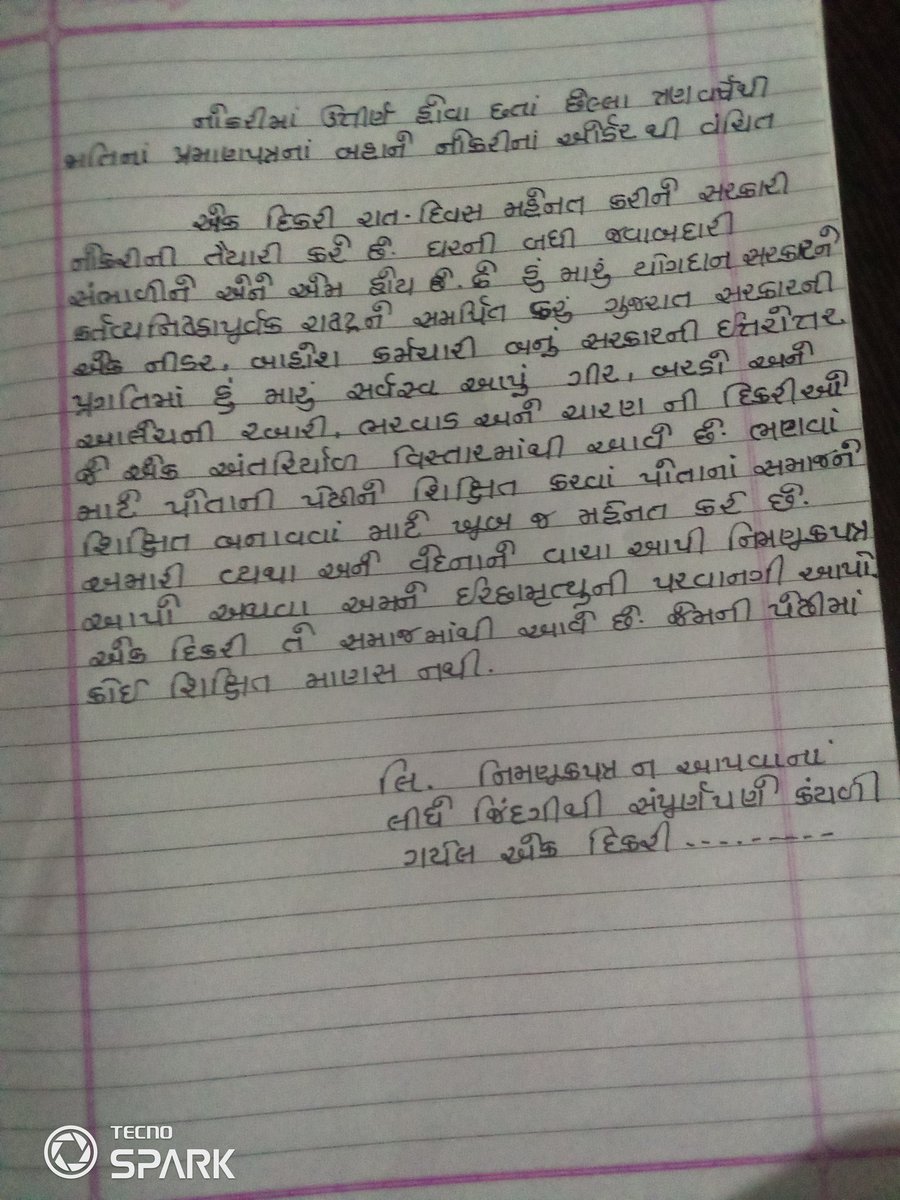 નોકરીમાં ઉત્તીર્ણ હોવા છતાં છેલ્લા ત્રણ વર્ષથી
જાતિનાં પ્રમાણપત્રનાં બહાને નોકરીનાં ઓર્ડર થી વંચિત
એક દિકરી રાત-દિવસ મહેનત કરીને સરકારી
નોકરીની તૈયારી કરે છે. ઘરની બધી જવાબદારી
સંભાળીને એને એમ હોય છે. કે હું મારું યોગદાન સરકારને
કર્તવ્યનિષ્ઠાપૂર્વક રાષ્ટ્રને સમર્પિત કરું ગુજરાત સરકારની
એક નીડર, બાહોશ કર્મચારી બનું સરકારની ઉત્તરોત્તર
પ્રગતિમાં હું મારું સર્વસ્વ આપું ગીર, બરડો અને
આલેચની રબારી, ભરવાડ અને ચારણ ની દિકરીઓ
જે એક અંતરિયાળ વિસ્તારમાંથી આવે છે. ભણવાં
માટે પોતાની પેઢીને શિક્ષિત કરવાં પોતાનાં સમાજને
શિક્ષિત બનાવવાં માટે ખુબ જ મહેનત કરે છે.
અમારી વ્યથા અને વેદનાને વાચા આપી નિમણૂકપત્ર
આપો અથવા અમને ઈચ્છામૃત્યુની પરવાનગી આપો.
એક દિકરી તે સમાજમાંથી આવે છે. જેમની પેઢીમાં
કોઈ શિક્ષિત માણસ નથી.
લિ. નિમણૂકપત્ર ન આપવાનાં
લીધે જિંદગીથી સંપૂર્ણપણે કંટાળી
ગયેલ એક દિકરી ---------
TECNO
SPARK